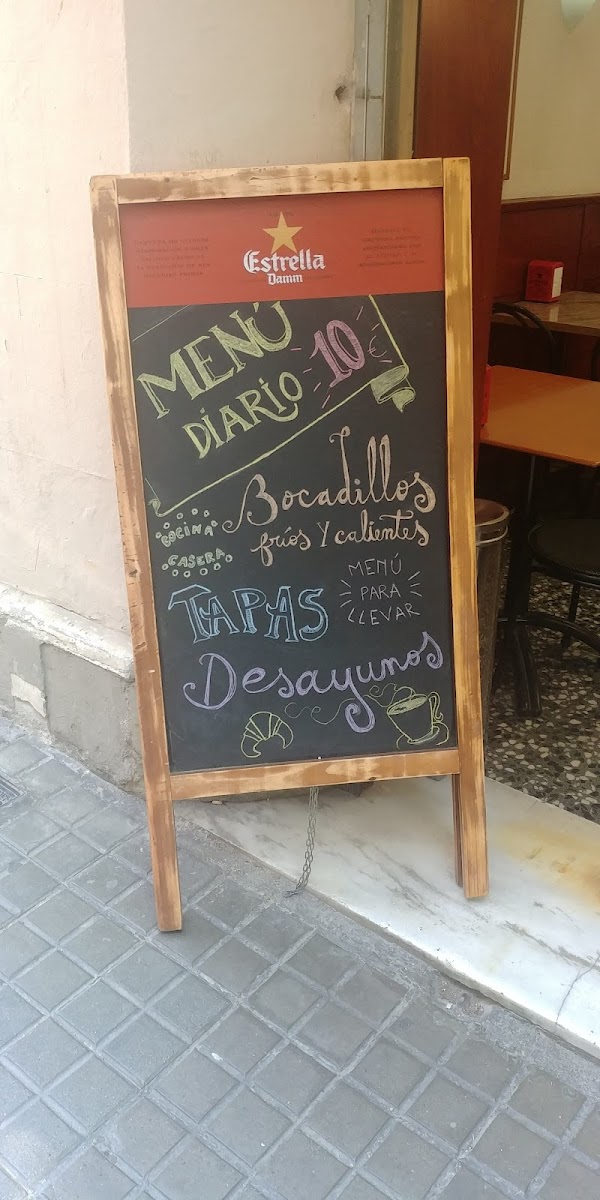 Estrella
Damm
MENÚ
DIARIO
10€
Bocadillos
fríos Y calientes
COCINA
CASERA
MENÚ
PARA
LLEVAR
TAPAS
Desayunos